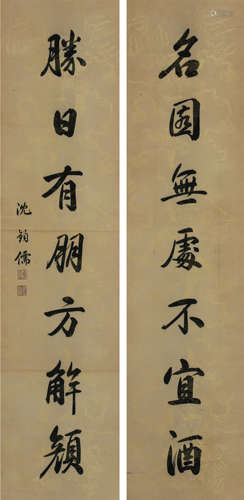 名園無處不宜酒
勝日有朋方解顏
沈鈞儒